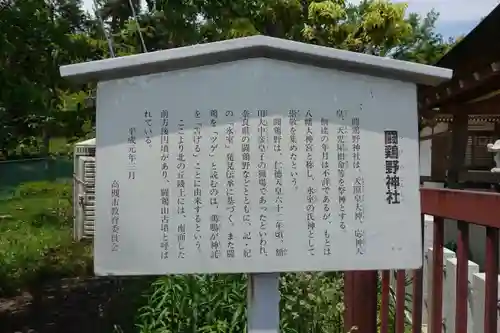 闘鶏野神社
闘鶏野神社は、天照皇大神、応神天
皇、天児屋根命等を祭神とする。
創建の年月は不詳であるが、もとは
八幡大神宮と称し、氷室の氏神として
崇敬を集めたという。
闘鶏野は、仁徳天皇六十二年頃、額
田大中彦皇子の猟場であったといわれ、
奈良県の闘鶏野などとともに、記・紀
の「氷室」発見伝承に基づく、また闘
鶏を「ツゲ」と読むのは、鶏鳴が神託
を「告げる」ことに由来するという。
ここより北の丘陵上には、南面した
前方後円墳があり、闘鶏山古墳と呼ば
れている。
平成元年三月
高槻市教育委員会